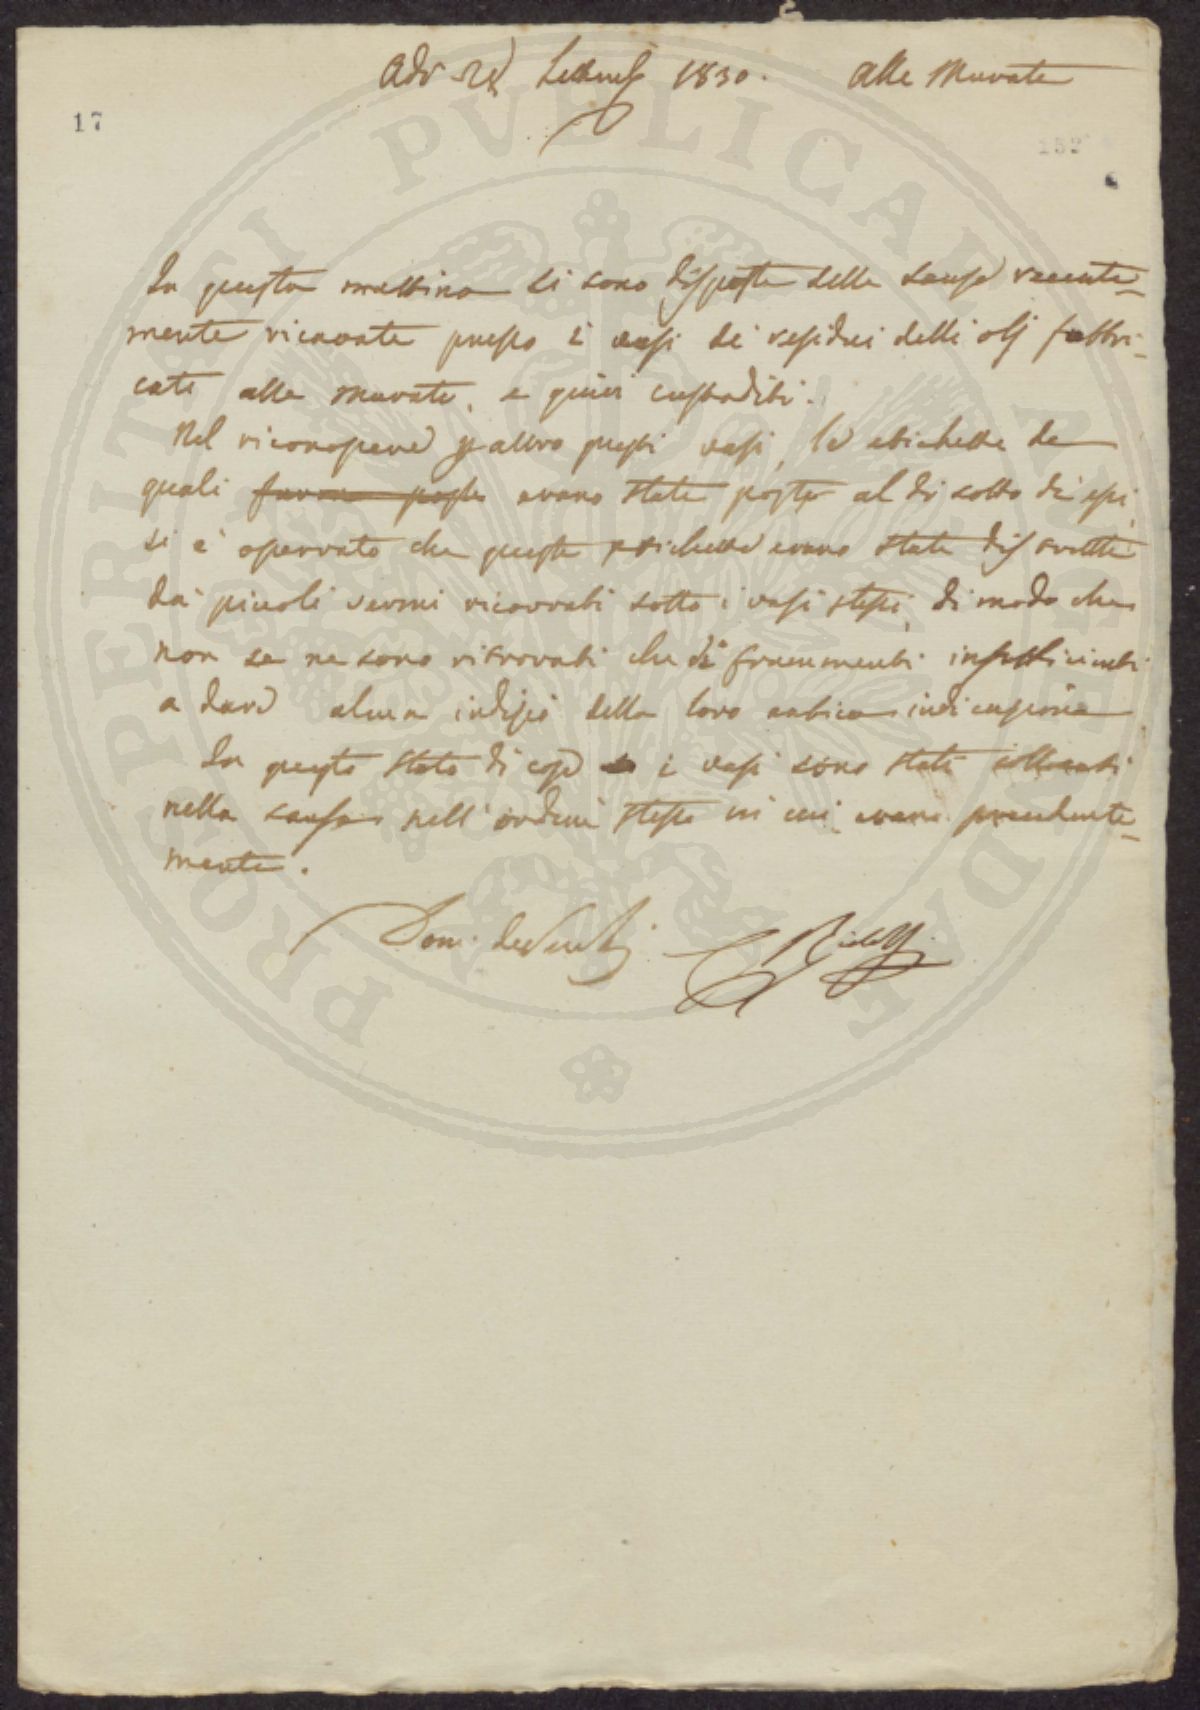 Adì 28 Settembre 1830. alle Murate
17
132
In questa mattina si sono disposte delle sanse recente-
mente ricavate presso i vasi de' residui delli olj fabbri-
cati alle Murate, e quivi custoditi.
Nel riconoscere per altro questi vasi, le etichette de
quali furono poste erano state poste al di sotto di essi,
si è osservato che queste etichette erano state distrutte
da' piccoli vermi ricovrati sotto i vasi stessi, di modo che
non se ne sono ritrovati che di frammenti insufficienti
a dare alcun indizio della loro antica indicazione
In questo stato di cose i vasi sono stati collocati
nella sansa nell'ordine stesso in cui erano precedente-
mente.
PROSPERITATI PVBLICAE AVGENDAE